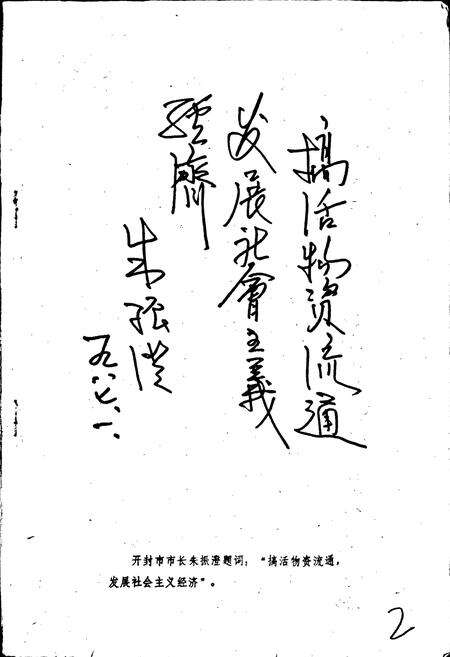 搞活物资流通
发展社會主義
經濟
朱振澄
一九八七.一.
开封市市长朱振澄题词：“搞活物资流通，
发展社会主义经济”。
2